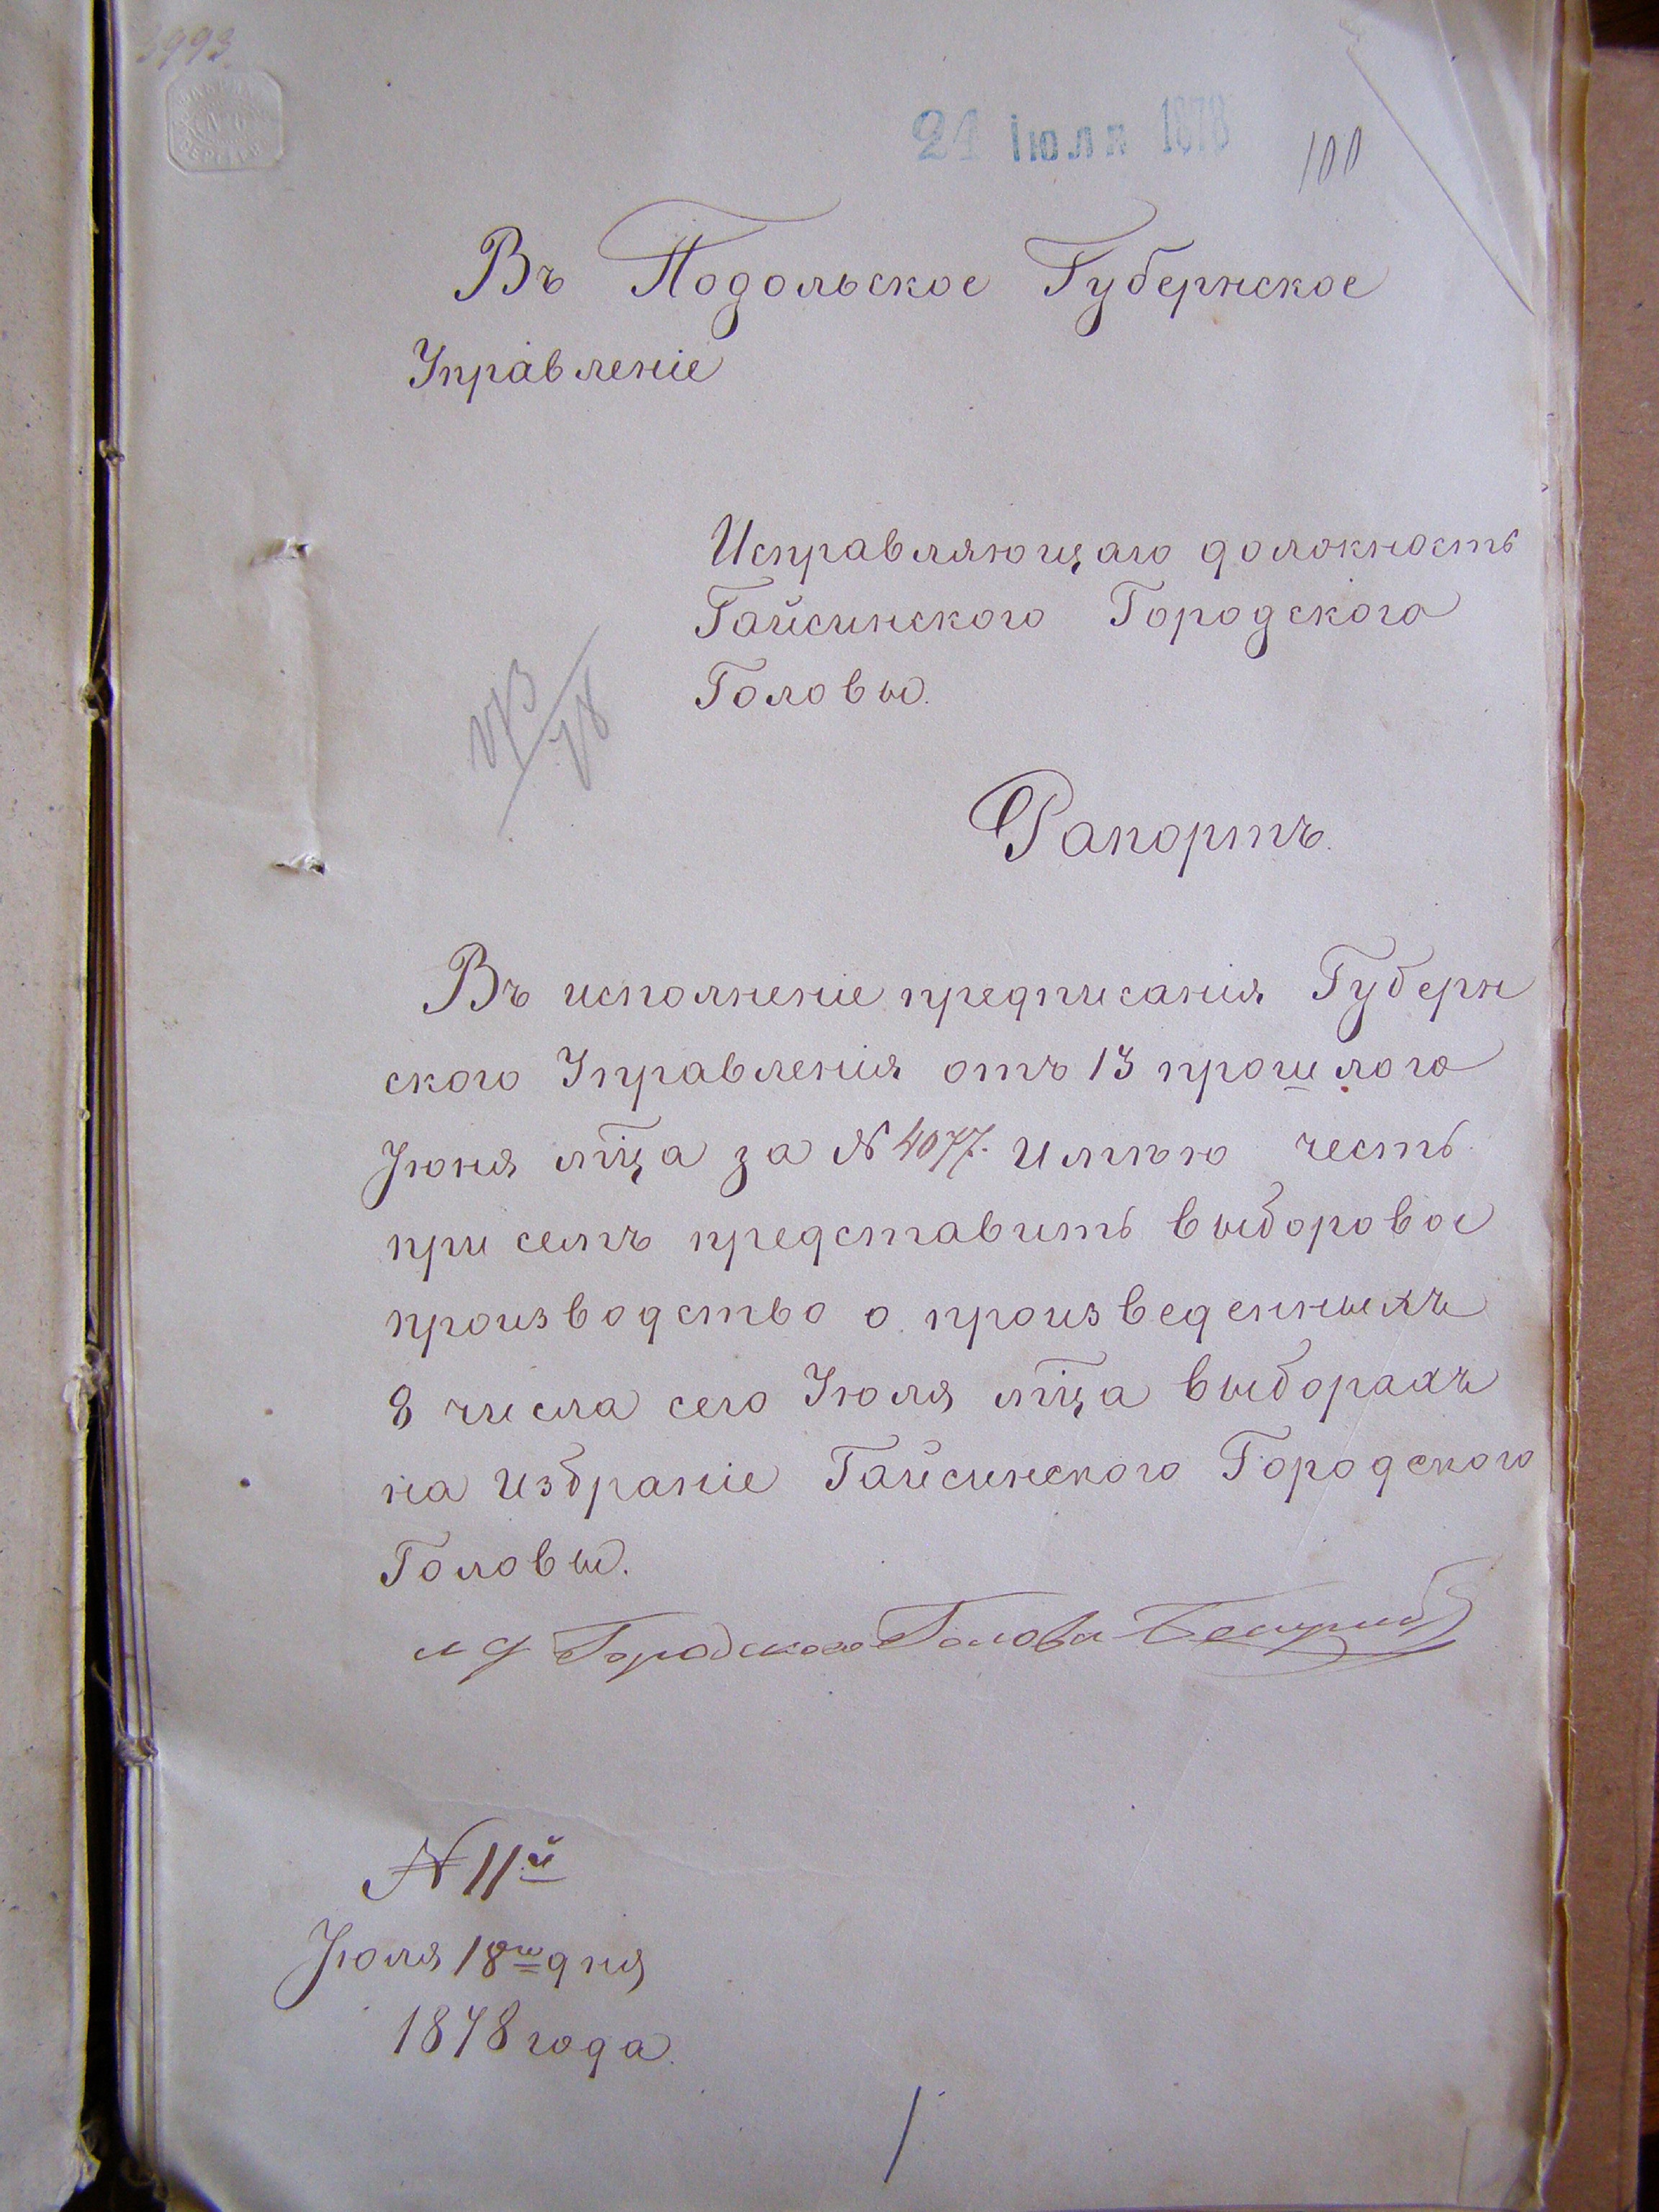 3993
21 Іюля 1878
100
Въ Подольское Губернское
Управленіе
Исправляющаго должность
Гайсинского Городского
Головы.
Рапортъ.
Въ исполненіе предписанія Губерн
ского Управленія отъ 13 прошлого
Іюня мѣца за № 4077. имѣю честь
при семъ представить выборовое
производство о произведенныхъ
8 числа сего Іюля мѣца выборахъ
на избраніе Гайсинского Городского
Головы.
и д Городского Головы
№ 11й
Іюля 18го дня
1878 года.